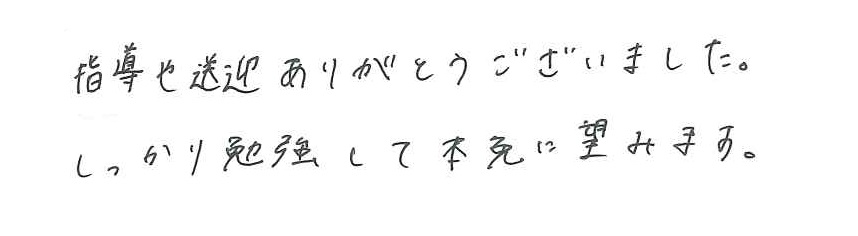 指導や送迎ありがとうございました。
しっかり勉強して本免に望みます。